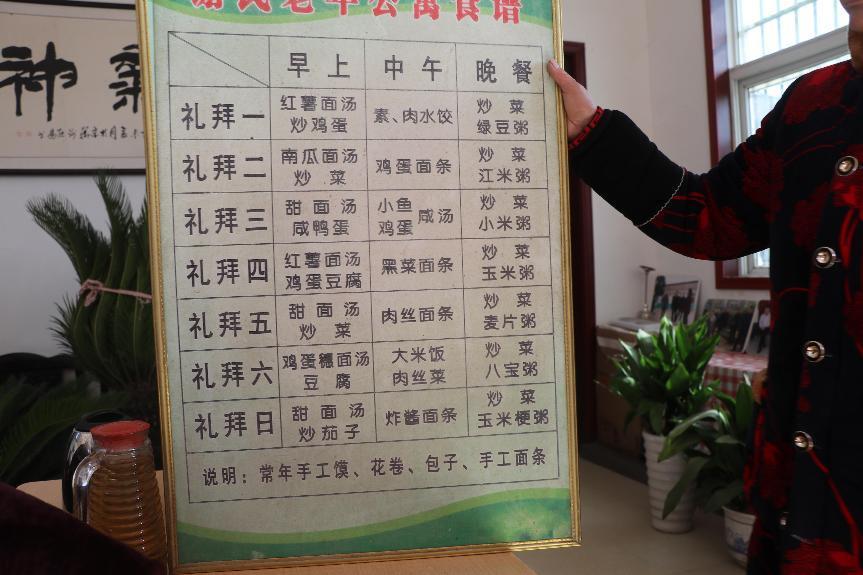 民老年公寓食谱
早上 中午 晚餐
礼拜一 红薯面汤 炒鸡蛋 素、肉水饺 炒菜 绿豆粥
礼拜二 南瓜面汤 炒菜 鸡蛋面条 炒菜 江米粥
礼拜三 甜面汤 咸鸭蛋 小鱼 鸡蛋 咸汤 炒菜 小米粥
礼拜四 红薯面汤 鸡蛋豆腐 黑菜面条 炒菜 玉米粥
礼拜五 甜面汤 炒菜 肉丝面条 炒菜 麦片粥
礼拜六 鸡蛋穗面汤 豆腐 大米饭 肉丝菜 炒菜 八宝粥
礼拜日 甜面汤 炒茄子 炸酱面条 炒菜 玉米梗粥
说明：常年手工馍、花卷、包子、手工面条